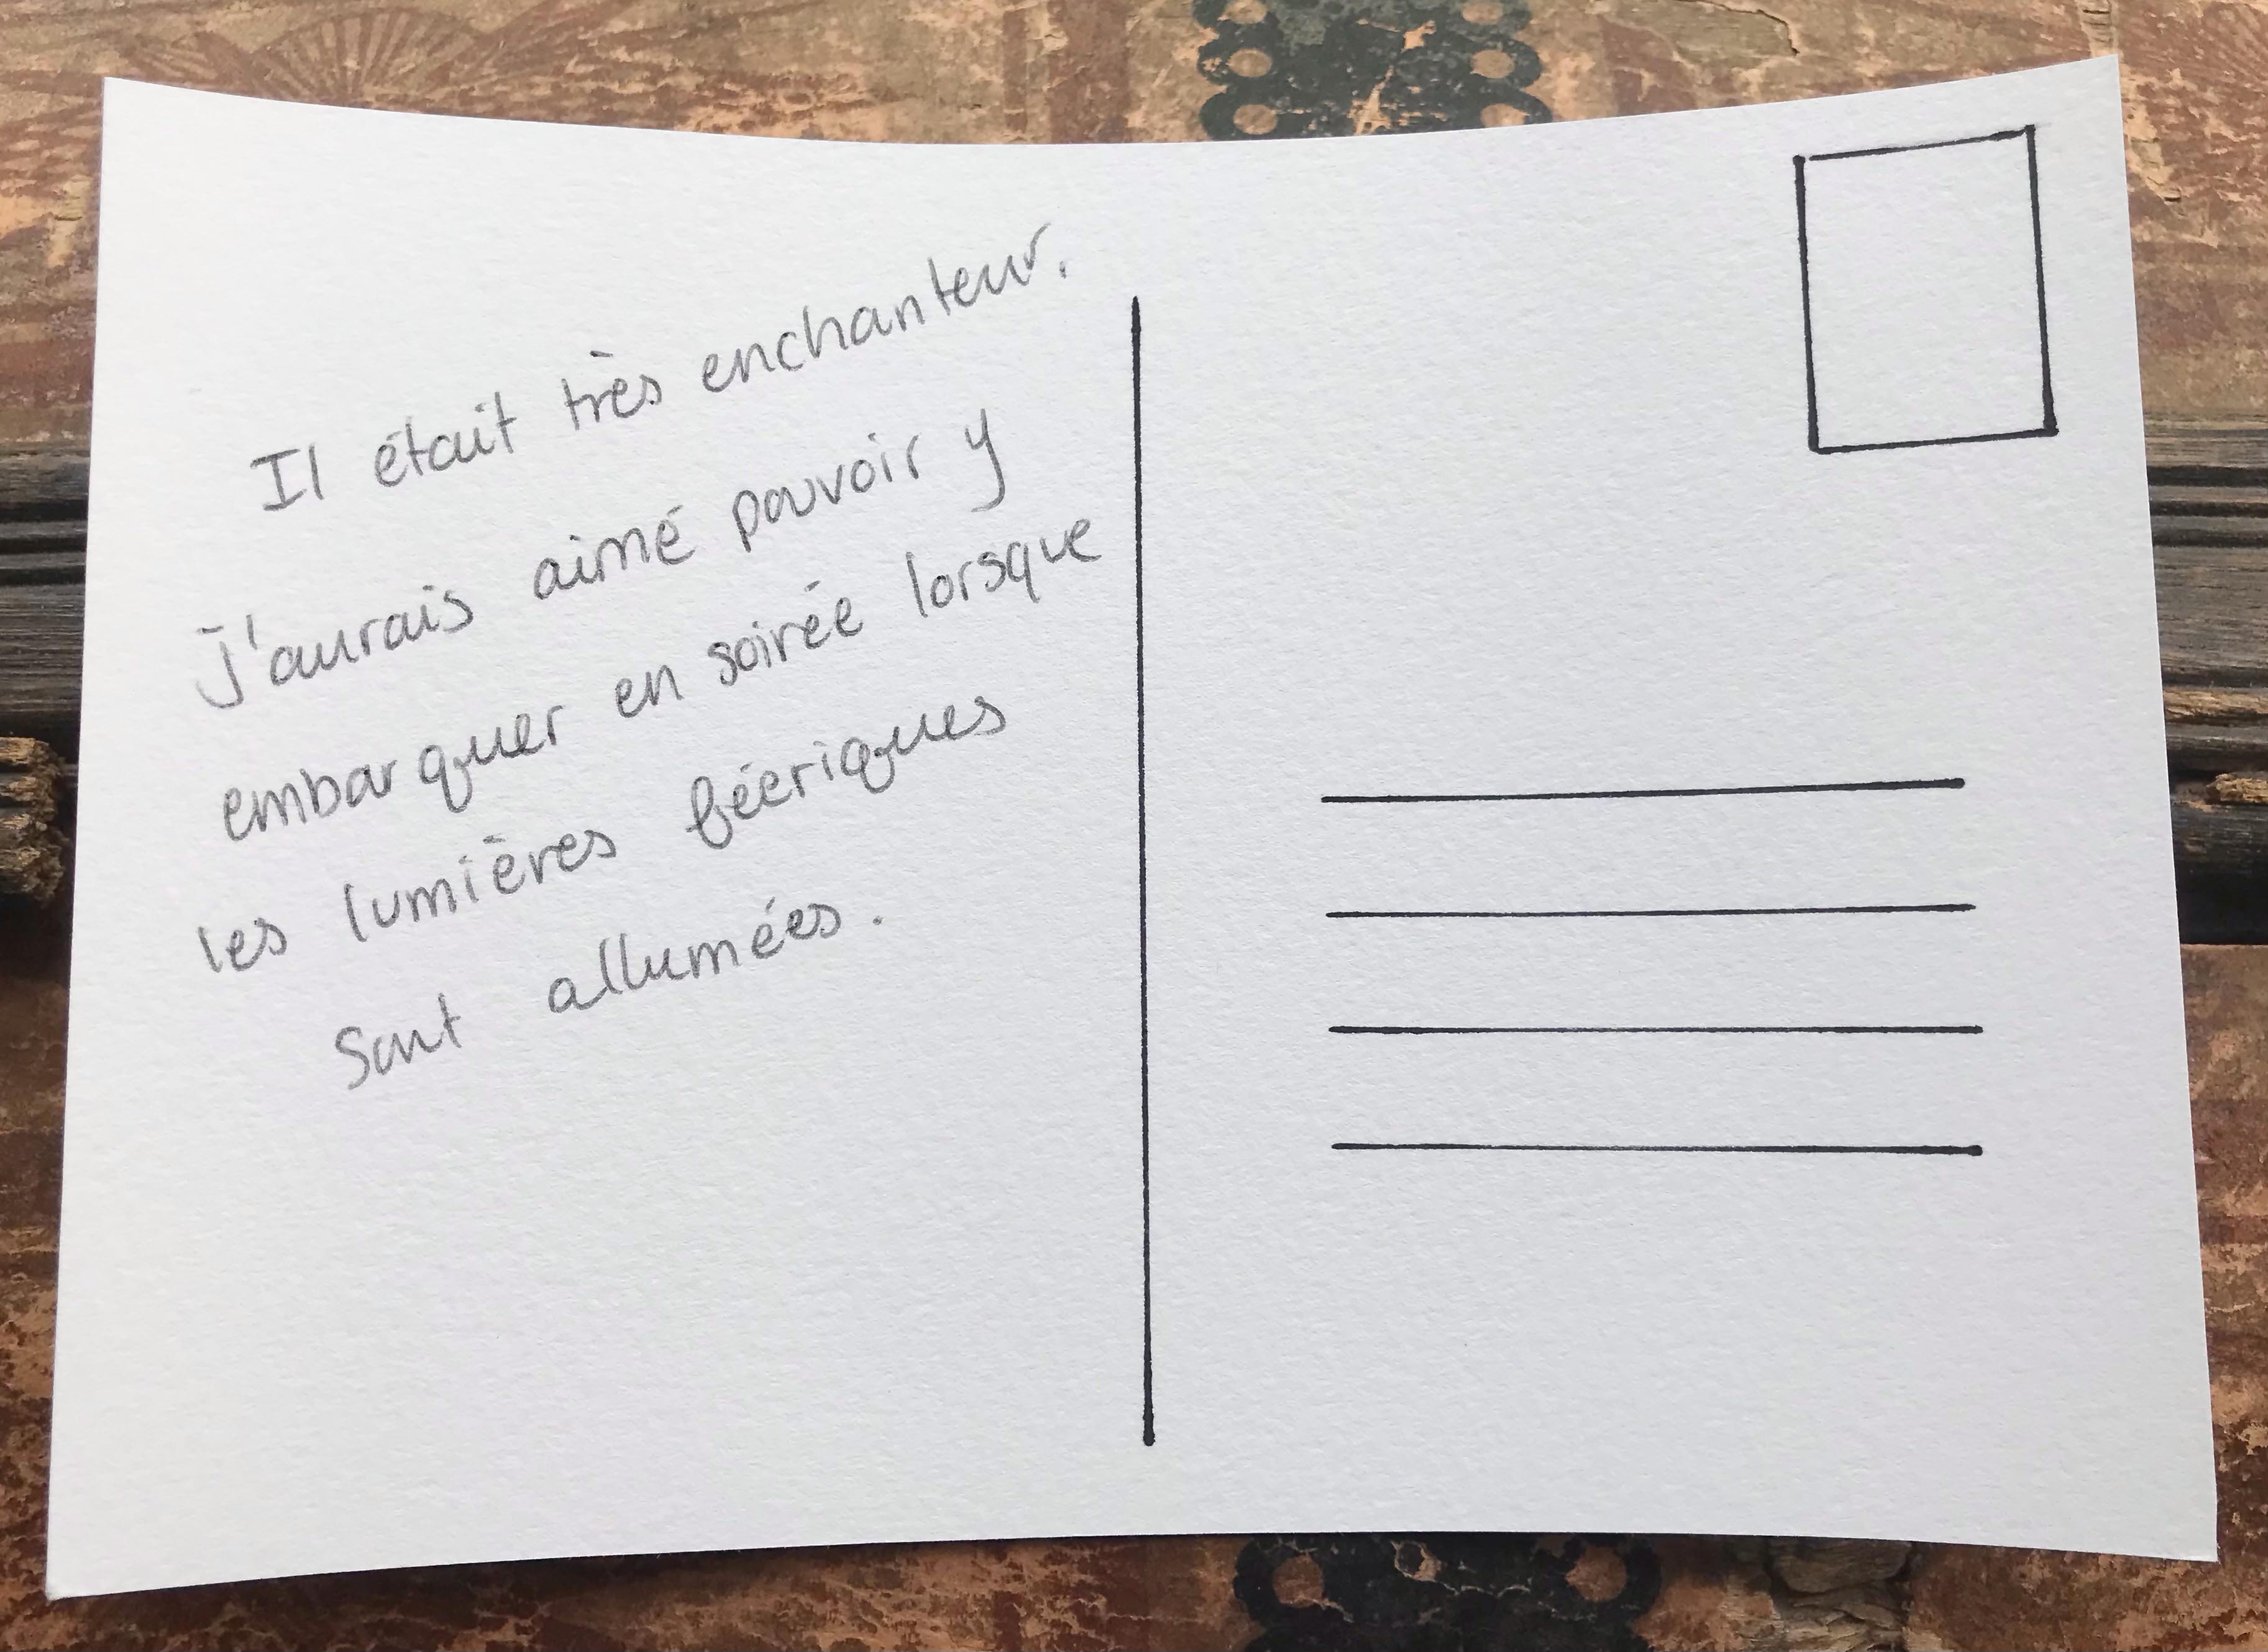 Il était très enchanteur.
J'aurais aimé pouvoir y
embarquer en soirée lorsque
les lumières féeriques
sont allumées.